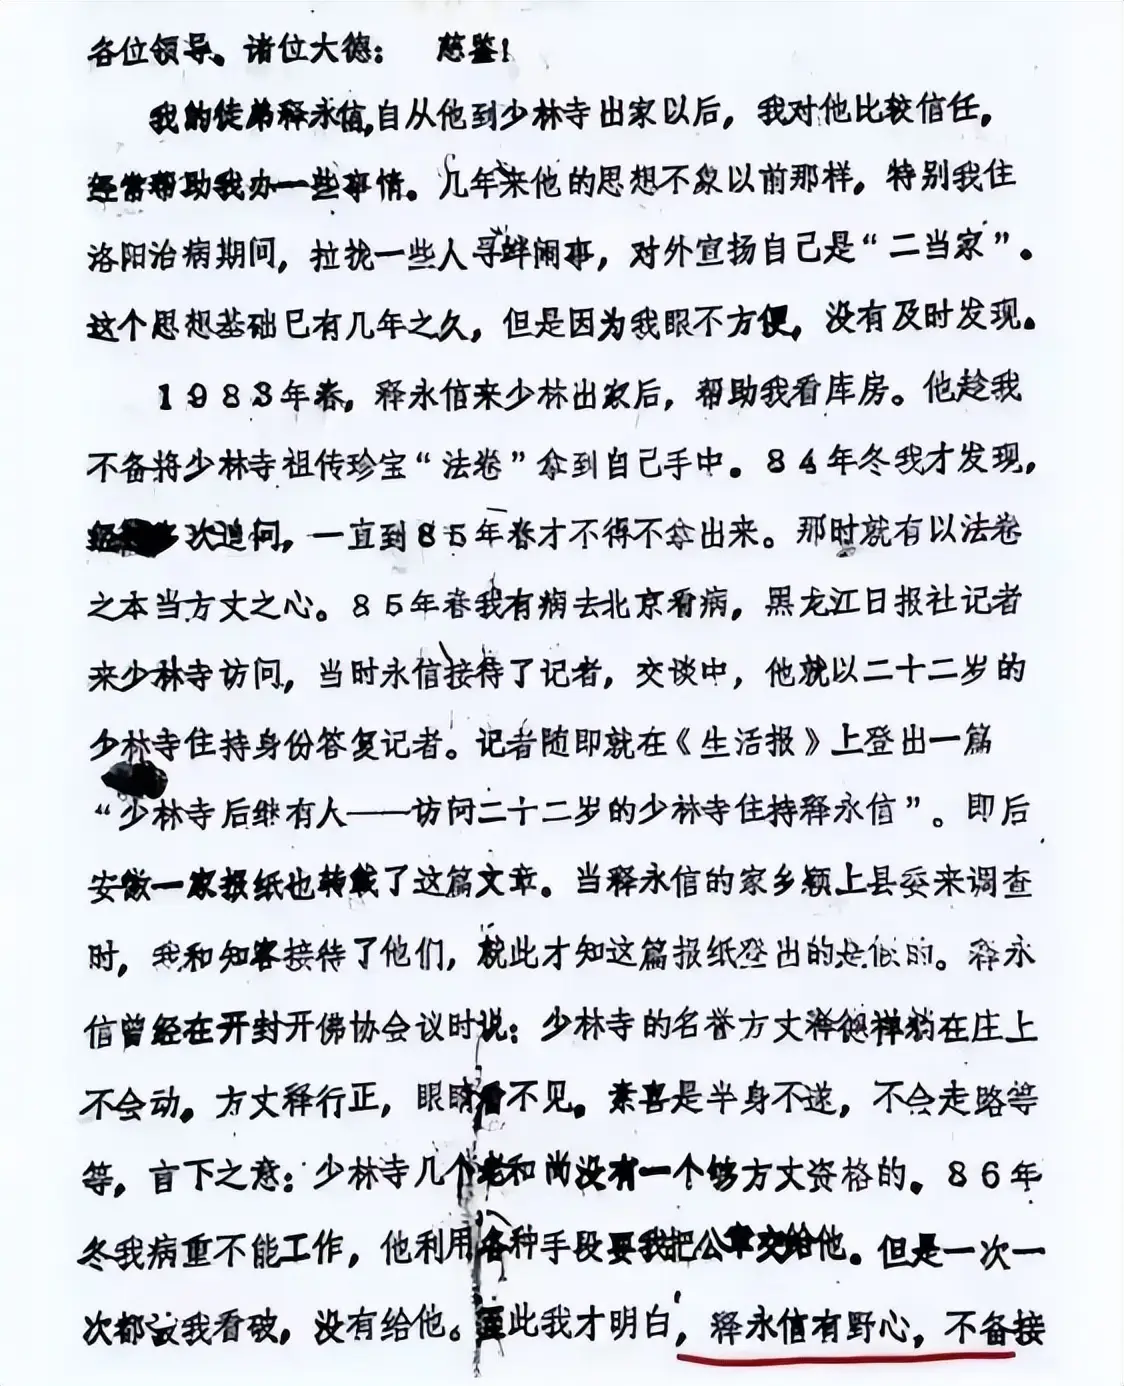 各位领导。诸位大德：　慈鉴！
我的徒弟释永信，自从他到少林寺出家以后，我对他比较信任，
经常帮助我办一些事情。几年来他的思想不象以前那样，特别我住
洛阳治病期间，拉拢一些人寻衅闹事，对外宣扬自己是“二当家”。
这个思想基础已有几年之久，但是因为我眼不方便，没有及时发现。
1983年春，释永信来少林出家后，帮助我看库房。他趁我
不备将少林寺祖传珍宝“法卷”拿到自己手中。84年冬我才发现，
次追问，一直到85年春才不得不拿出来。那时就有以法卷
之本当方丈之心。85年春我有病去北京看病，黑龙江日报社记者
来少林寺访问，当时永信接待了记者，交谈中，他就以二十二岁的
少林寺住持身份答复记者。记者随即就在《生活报》上登出一篇
“少林寺后继有人——访问二十二岁的少林寺住持释永信”。即后
安徽一家报纸也转载了这篇文章。当释永信的家乡颖上县委来调查
时，我和知客接待了他们，就此才知这篇报纸登出的是假的。释永
信曾经在开封开佛协会议时说：少林寺的名誉方丈释德禅躺在庄上
不会动。方丈释行正，眼睛看不见。素喜是半身不遂，不会走路等
等，言下之意：少林寺几个老和尚没有一个够方丈资格的。86年
冬我病重不能工作，他利用各种手段要我把公章交给他。但是一次一
次都被我看破，没有给他。至此我才明白，释永信有野心，不备接